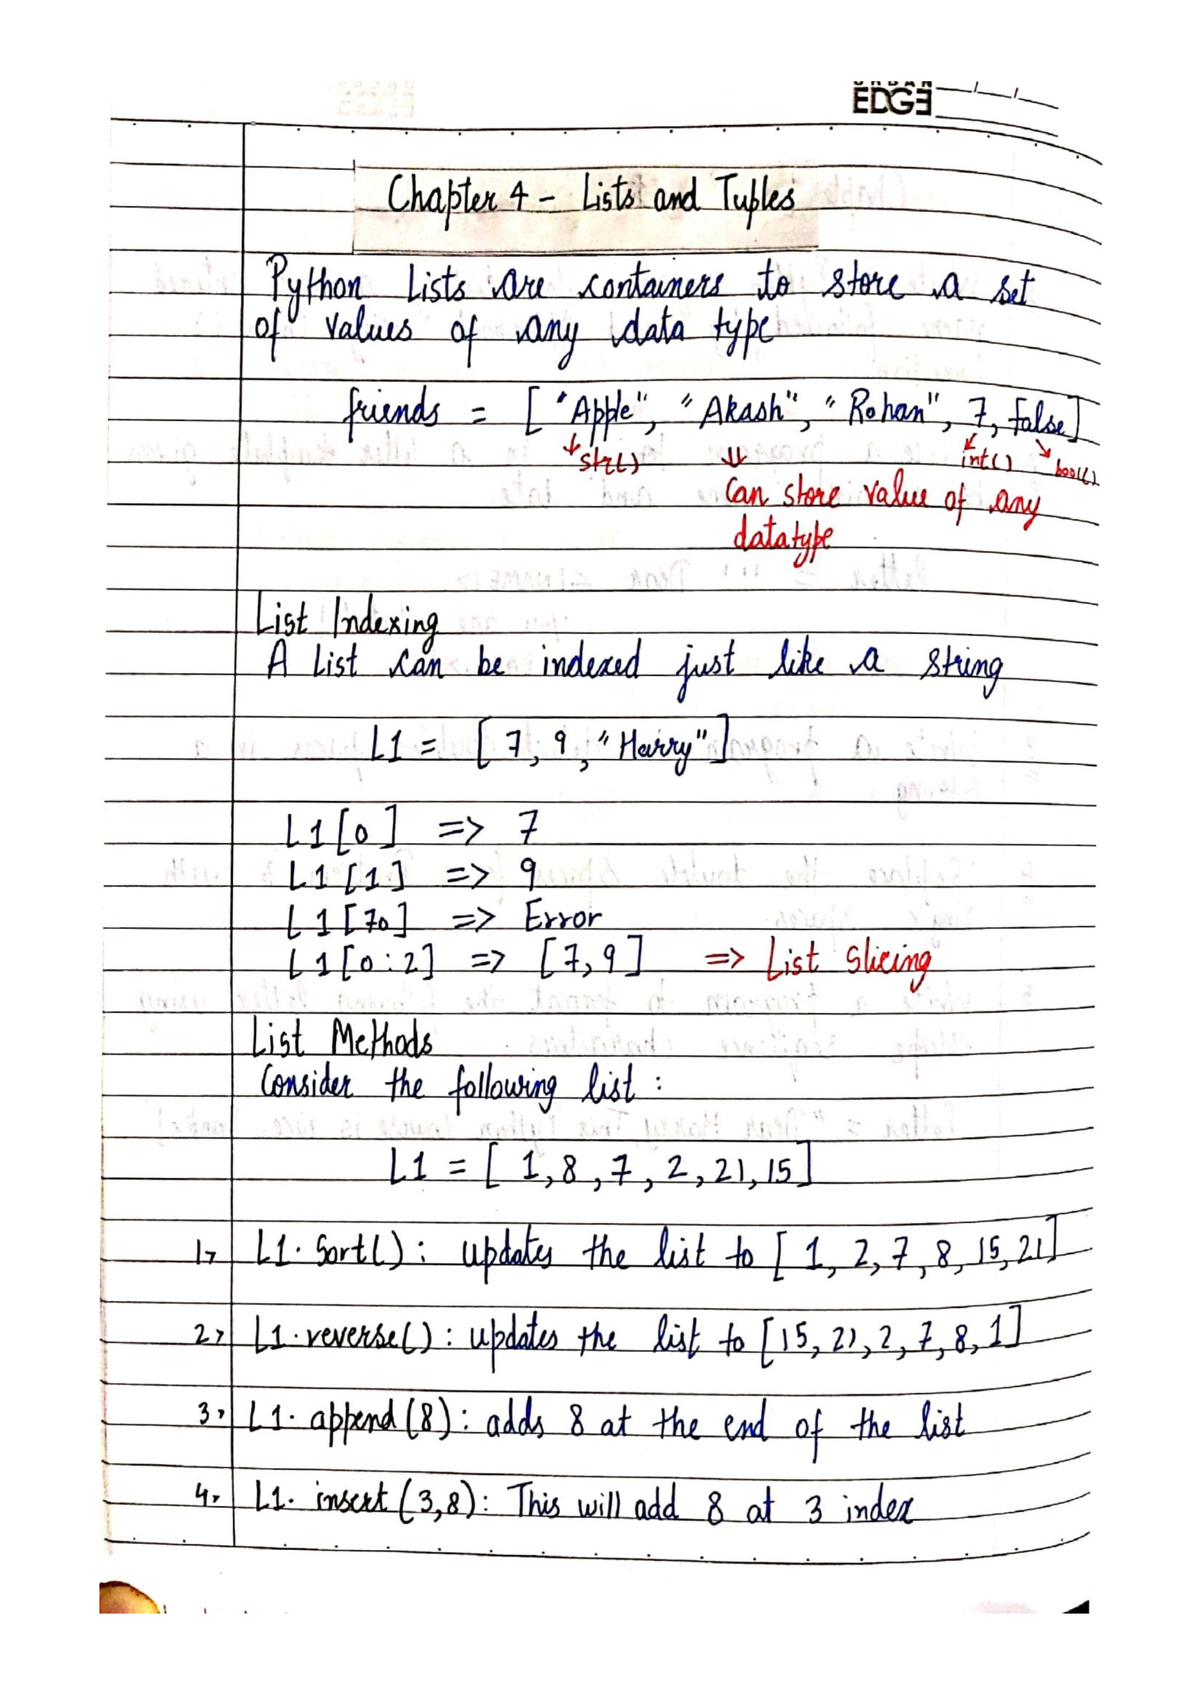 URBAN
EDGE
Chapter 4 - Lists and Tuples
Python Lists are containers to store a set
of values of any data type
friends = ["Apple", "Akash", "Rohan", 7, false]
str() int() bool()
Can store value of any
datatype
List Indexing
A List can be indexed just like a string
L1 = [7, 9, "Harry"]
L1[0] => 7
L1[1] => 9
L1[70] => Error
L1[0:2] => [7,9] => List Slicing
List Methods
Consider the following list :
L1 = [1,8,7,2,21,15]
1> L1. Sort() : updates the list to [1,2,7,8,15,21]
2> L1.reverse() : updates the list to [15,21,2,7,8,1]
3> L1. append(8) : adds 8 at the end of the list
4> L1. insert(3,8) : This will add 8 at 3 index